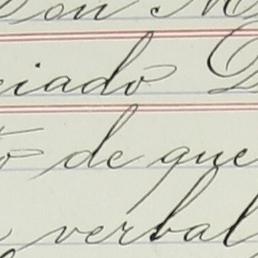 Don M
ciado D
to de que
verbal